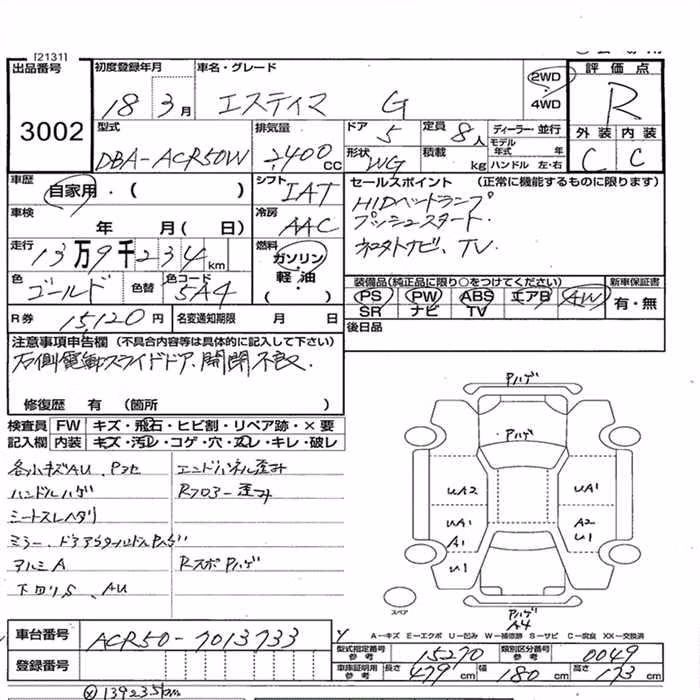 [2131]
出品番号
3002
初度登録年月
18 3月
車名・グレード
エスティマ G
2WD
4WD
評価点
R
外装 内装
C C
型式
DBA-ACR50W
排気量
2,400 CC
ドア 5
定員 8人
形状 WG
積載 kg
ディーラー・並行
モデル年式 年
ハンドル 左・右
車歴
自家用・( )
シフト IAT
車検
年 月( 日)
冷房 AAC
走行
13万9千234km
燃料
ガソリン・
軽油
( )
色
ゴールド
色替
色コード
5A4
R券 15,120円
名変通知期限 月 日
セールスポイント (正常に機能するものに限ります)
HIDヘッドランプ
プッシュスタート.
TV
装備品(純正品に限り○をつけてください)
PS PW ABS エアB AW
SR ナビ TV
新車保証書
有・無
後日品
注意事項申告欄 (不具合内容等は具体的に記入して下さい)
右側電動スライドドア、開閉不良
修復歴 有 (箇所 )
検査員
記入欄
FW キズ・飛石・ヒビ割・リペア跡・×要
内装 キズ・汚レ・コゲ・穴・変レ・キレ・破レ
各小キズAU、Pコセ
エンドパネル歪み
ハンドルハゲ
Rフロアー歪み
シートスレヘタリ
アルミA
RスポPハゲ
下回りS、AU
Pハゲ
Pハゲ
UA2
UA1
UA1
A2
A1
U1
U1
Pハゲ
A4
スペア
A-キズ E-エクボ U-凹み W-補修跡 S-サビ C-腐食 XX-交換済
車台番号
ACR50-7013733
登録番号
型式指定番号
参考
15270
類別区分番号
参考
0049
車庫証明用
参考
長さ 479cm
幅 180cm
高さ 173cm
139235km